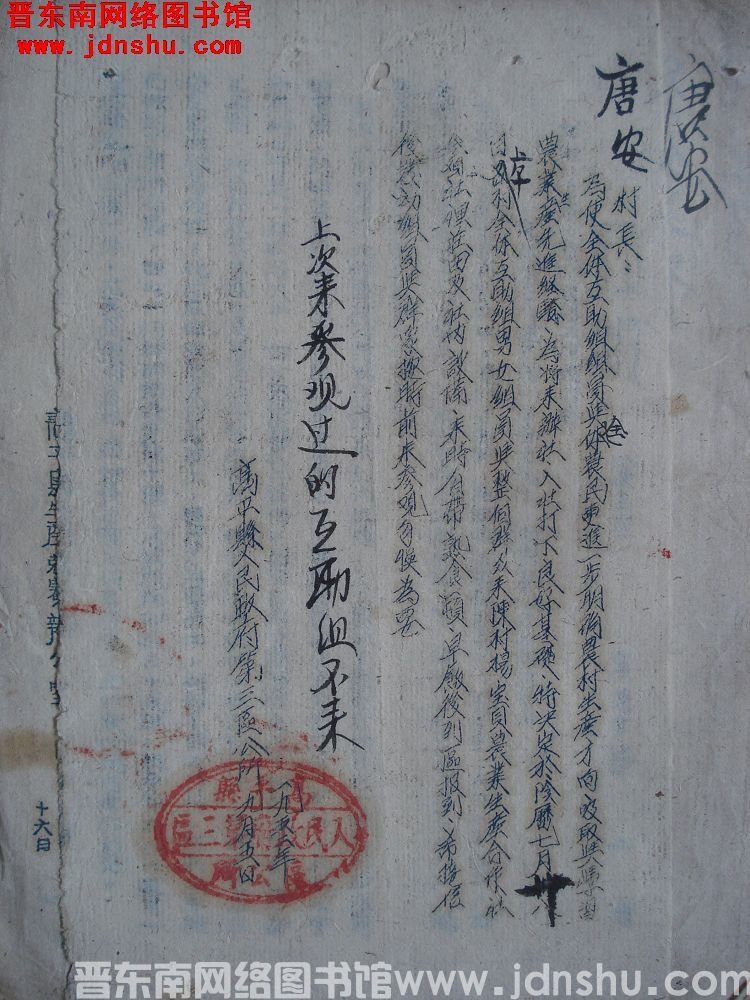 晋东南网络图书馆
www.jdnshu.com
唐安
唐安
村長：
为使全体互助組組員與你農民更進一步明确農村生産方向吸取與學習
農業生産先進經驗為將来辦社入社打下良好基礎、特决定於陰曆七月廿
日上午 村全体互助組男女組員與整個群众来陳村楊宝同農業生産合作社
参观社裡莊田及社内設備、来時自帶熟食頭、早飯後到區报到、希接信
後 動組員與群衆按時前来參观勿悮為要
上次来参观过的互助组不来
高平縣人民政府第三區公所
一九五三年
九月五日
高平縣
人民政府第三區
區公所
十六日
晋东南网络图书馆www.jdnshu.com